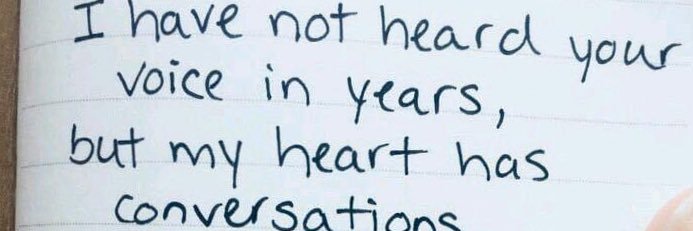 I have not heard your
voice in years,
but my heart has
conversations